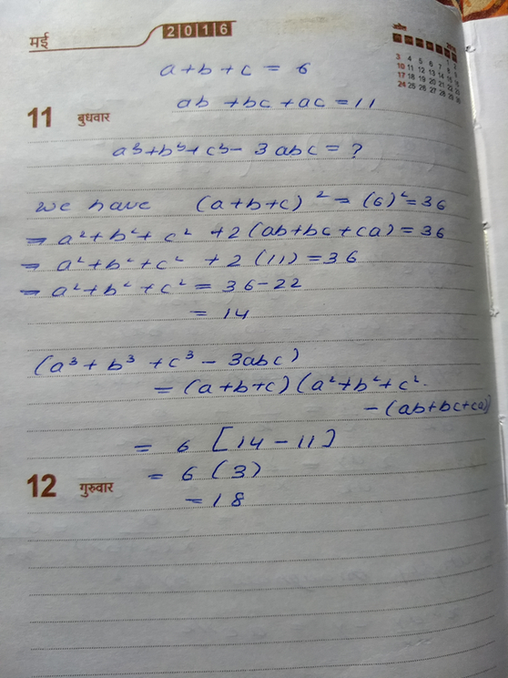 मई
2016
a+b+c = 6
11 बुधवार
ab +bc +ac = 11
a³+b³+c³- 3abc = ?
We have (a+b+c)² = (6)² = 36
⇒ a²+b²+c² +2(ab+bc+ca) = 36
⇒ a²+b²+c² +2(11) = 36
⇒ a²+b²+c² = 36-22
= 14
(a³+b³+c³-3abc)
= (a+b+c)(a²+b²+c²
-(ab+bc+ca))
= 6 [14-11]
12 गुरुवार
= 6 (3)
= 18